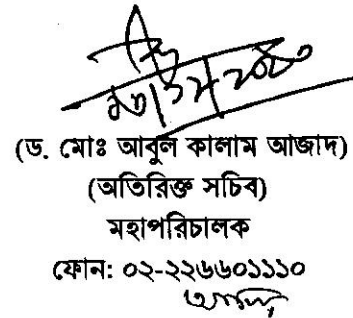 (ড. মোঃ আবুল কালাম আজাদ)
(অতিরিক্ত সচিব)
মহাপরিচালক
ফোন: ০২-২২৬৬০১১১০